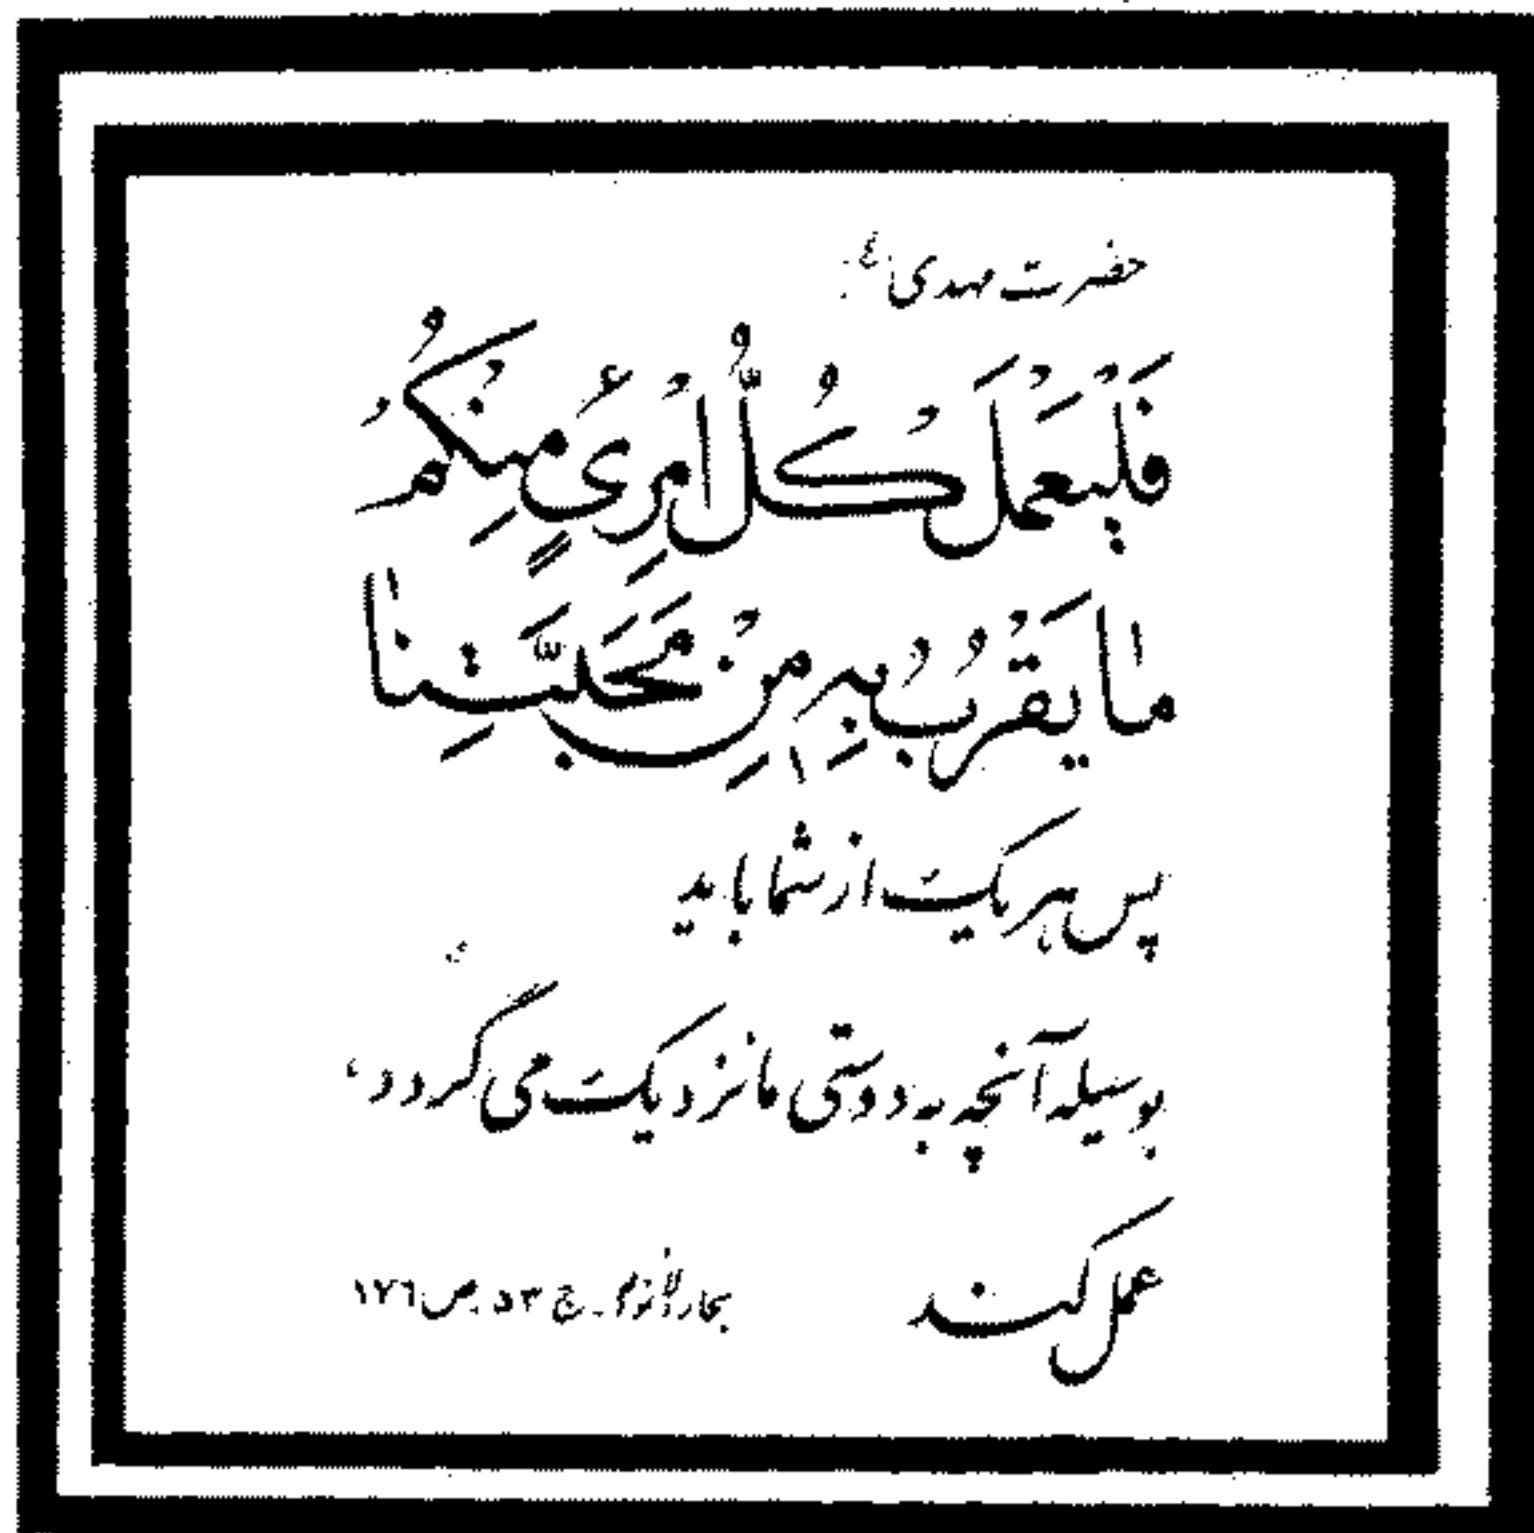 حضرت مهدی ع
فَلْیَعْمَلَ کُلُّ امْرِئٍ مِنْکُمْ
ما یَقْرُبُ بِهِ مِنْ مَحَبَّتِنا
پس هر یک از شما باید
بوسیله آنچه به دوستی ما نزدیک می گردد،
عمل کند
بحارالأنوار ـ ج ۵۳ ـ ص ۱۷٦